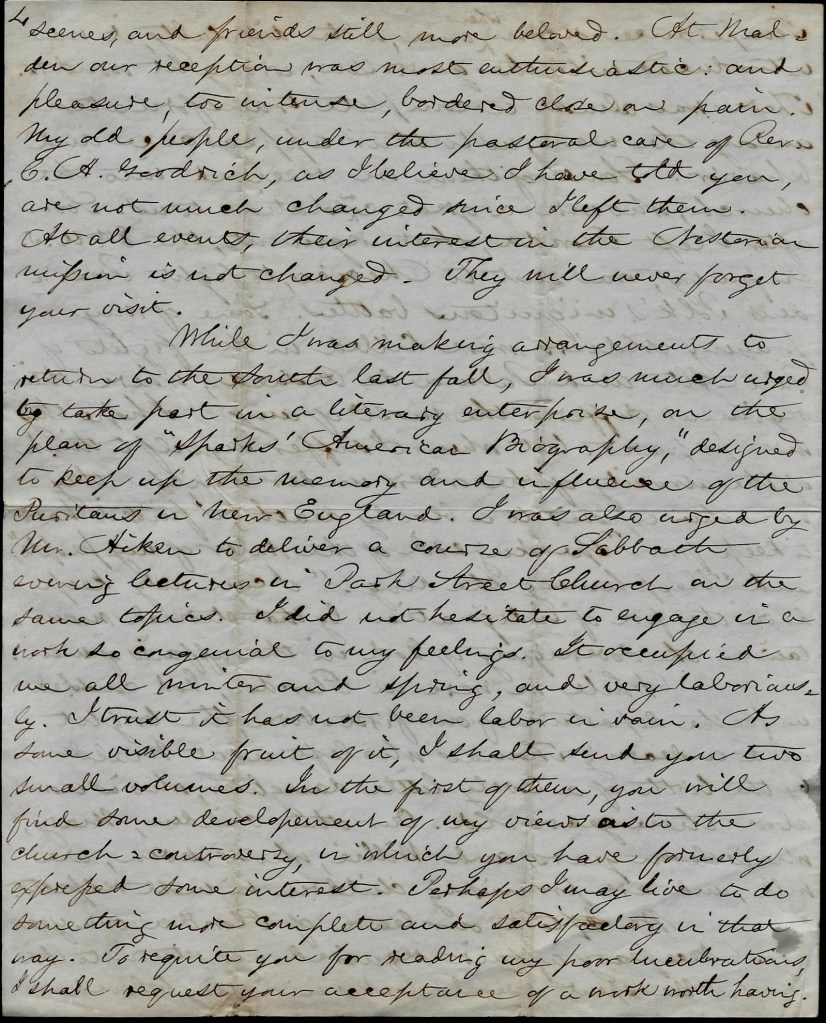 4
scenes, and friends still more beloved. At Mal=
den our reception was most enthusiastic: and
pleasure, too intense, bordered close on pain.
My old people, under the pastoral care of Rev.
E. A. Goodrich, as I believe I have told you,
are not much changed since I left them.
At all events, their interest in the Nestorian
mission is not changed. They will never forget
your visit.
While I was making arrangements to
return to the South last fall, I was much urged
to take part in a literary enterprise, on the
plan of "Sparks' American Biography," designed
to keep up the memory and influence of the
Puritans in New England. I was also urged by
Mr. Aiken to deliver a course of Sabbath
evening lectures in Park Street Church on the
same topics. I did not hesitate to engage in a
work so congenial to my feelings. It occupied
me all winter and spring, and very laborious=
ly. I trust it has not been labor in vain. As
some visible fruit of it, I shall send you two
small volumes. In the first of them, you will
find some developement of my views as to the
church=controversy, in which you have formerly
expressed some interest. Perhaps I may live to do
something more complete and satisfactory in that
way. To requite you for reading my poor lucubrations,
I shall request your acceptance of a work worth having.